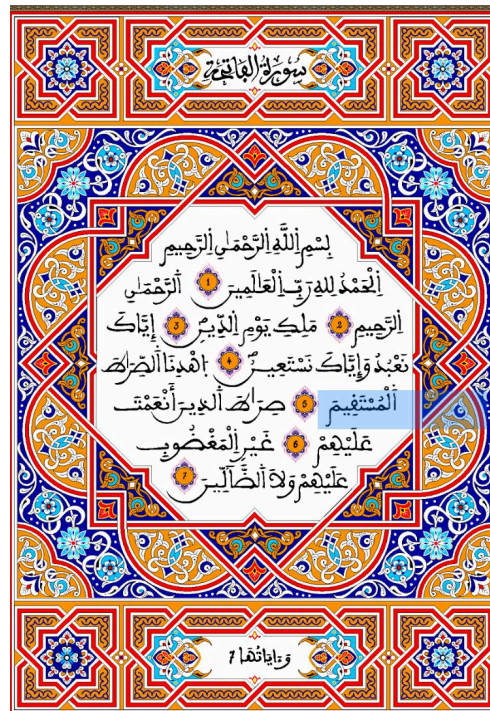 سُورَةُ الفَاتِحَة
بِسْمِ اِللَّهِ اِلرَّحْمَٰنِ اِلرَّحِيمِ
اِلْحَمْدُ لِلهِ رَبِّ اِلْعَٰلَمِينَ 1 اَلرَّحْمَٰنِ
اِلرَّحِيمِ 2 مَلِكِ يَوْمِ اِلدِّينِ 3 إِيَّاكَ
نَعْبُدُ وَإِيَّاكَ نَسْتَعِينُ 4 اِهْدِنَا اَلصِّرَٰطَ
اَلْمُسْتَفِيمَ 5 صِرَٰطَ اَلذِينَ أَنْعَمْتَ
عَلَيْهِمْ 6 غَيْرِ اِلْمَغْضُوبِ
عَلَيْهِمْ وَلَا اَلضَّآلِّينَ 7
وَءَايَاتُهَا 7